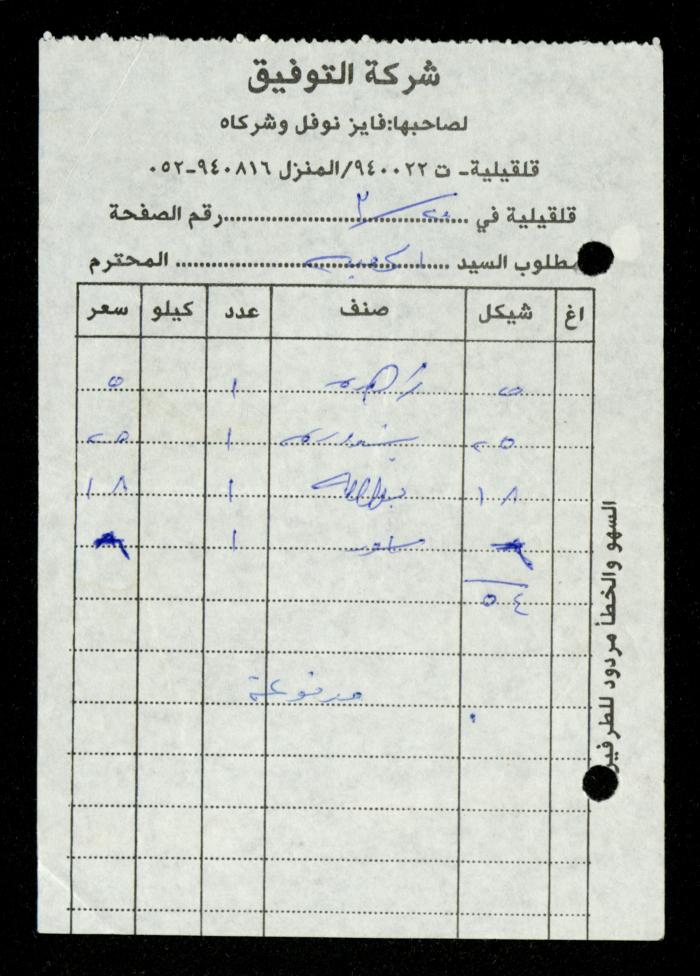 شركة التوفيق
لصاحبها:فايز نوفل وشركاه
قلقيلية- ت ٩٤٠٠٢٢/المنزل ٩٤٠٨١٦-٠٥٢
قلقيلية في ٢٠/٢ رقم الصفحة
مطلوب السيد المحترم
اغ شيكل صنف عدد كيلو سعر
٥ ١ ٥
٢٥ بندورة ١ ٢٥
١٨ ١ ١٨
١
٥٤
مدفوعة
السهو والخطأ مردود للطرفين